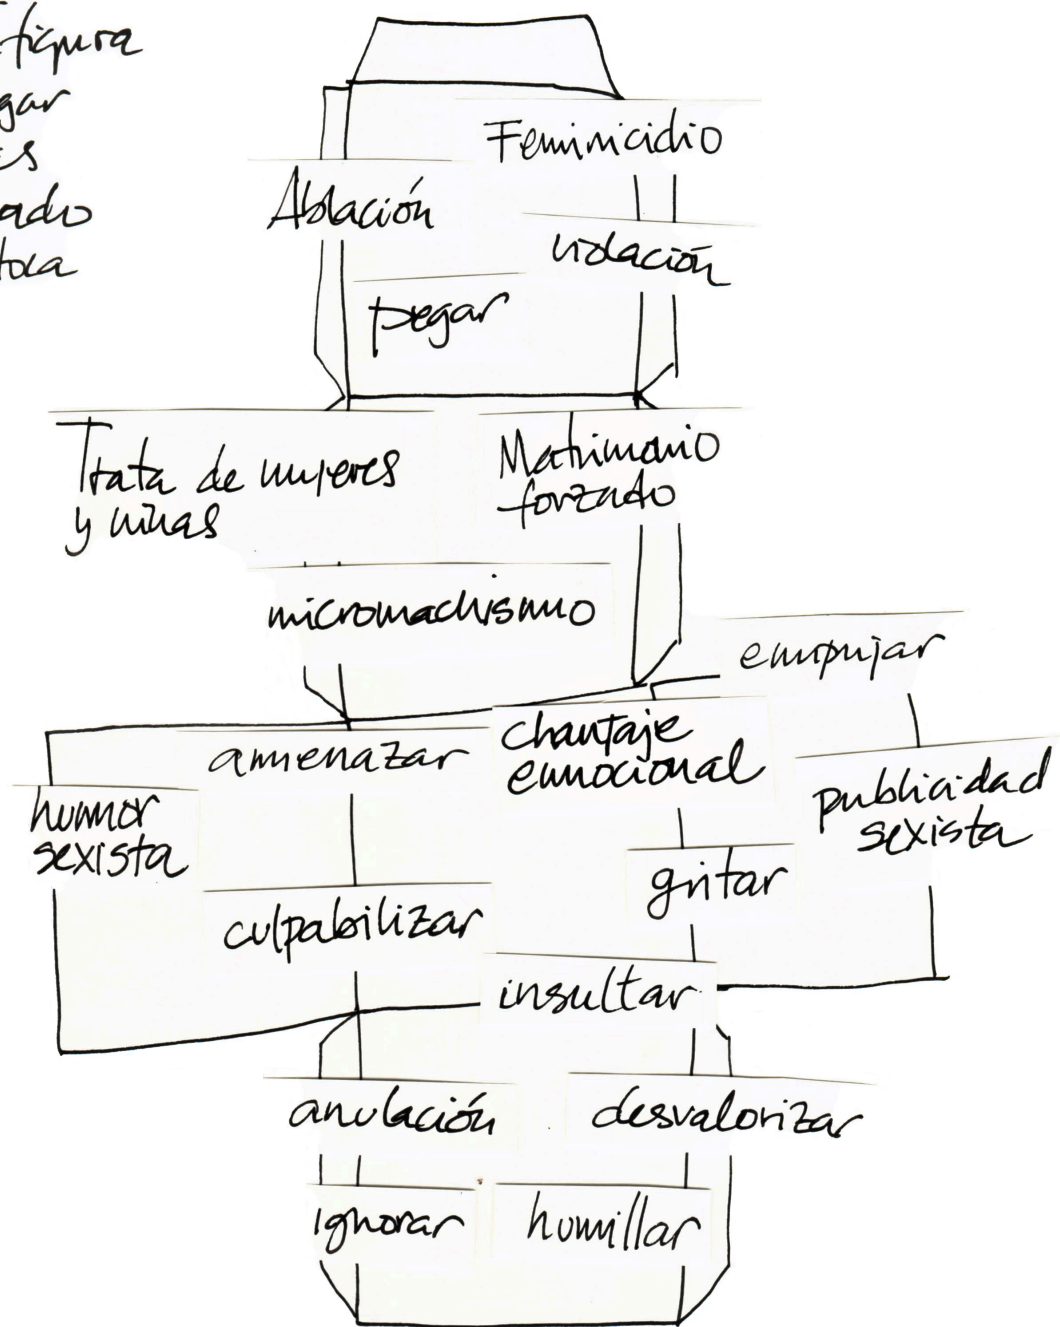 figura
gar
es
ado
toca
Feminicidio
Ablación
violación
pegar
Trata de mujeres
y niñas
Matrimonio
forzado
micromachismo
empujar
amenazar
chantaje
emnocional
humor
sexista
publicidad
sexista
gritar
culpabilizar
insultar
anulación
desvalorizar
ignorar
humillar